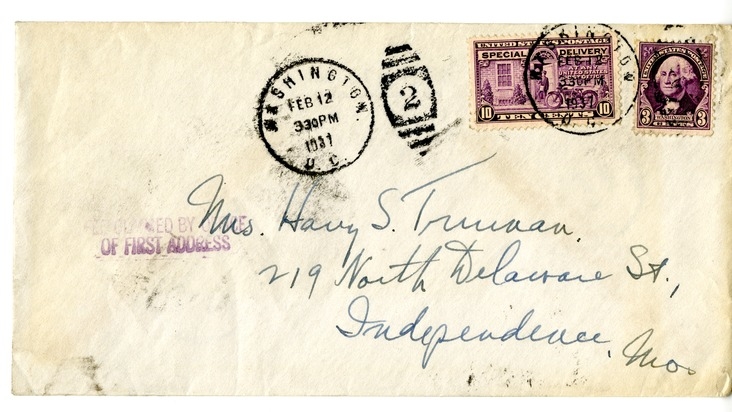 WASHINGTON,
FEB 12
330 PM
1937
D. C.
2
UNITED STATES POSTAGE
SPECIAL DELIVERY
10 TEN CENTS 10
WASHINGTON
FEB 12
330 PM
1937
D. C.
UNITED STATES POSTAGE
WASHINGTON
3 CENTS 3
BY
OF FIRST ADDRESS
Mrs. Harry S. Truman.
219 North Delaware St.,
Independence, Mo.